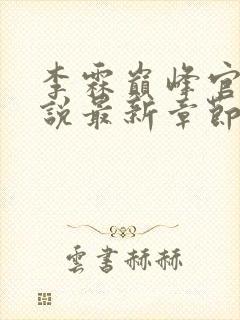 李霖巔峰官
說最新章節
雲書赫赫